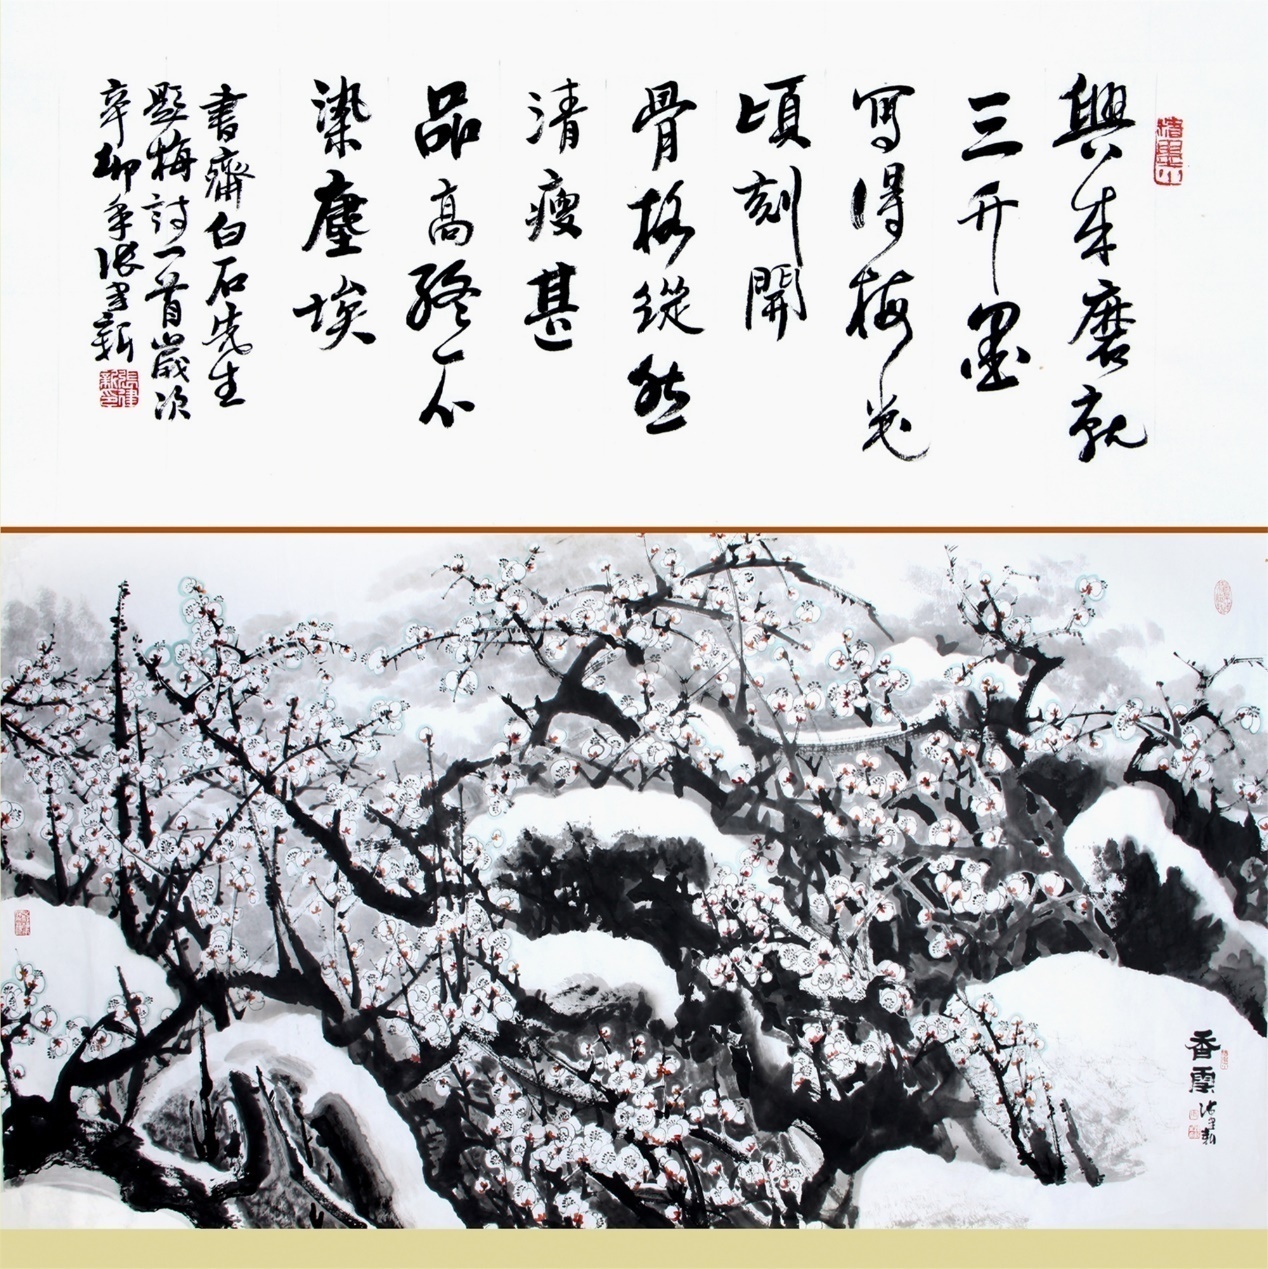 興來磨就
三升墨
寫得梅花
頃刻開
骨格縱然
清瘦甚
品高終不
染塵埃
書齊白石先生
題梅詩一首歲次
辛卯年張建新
張建新印
香雪